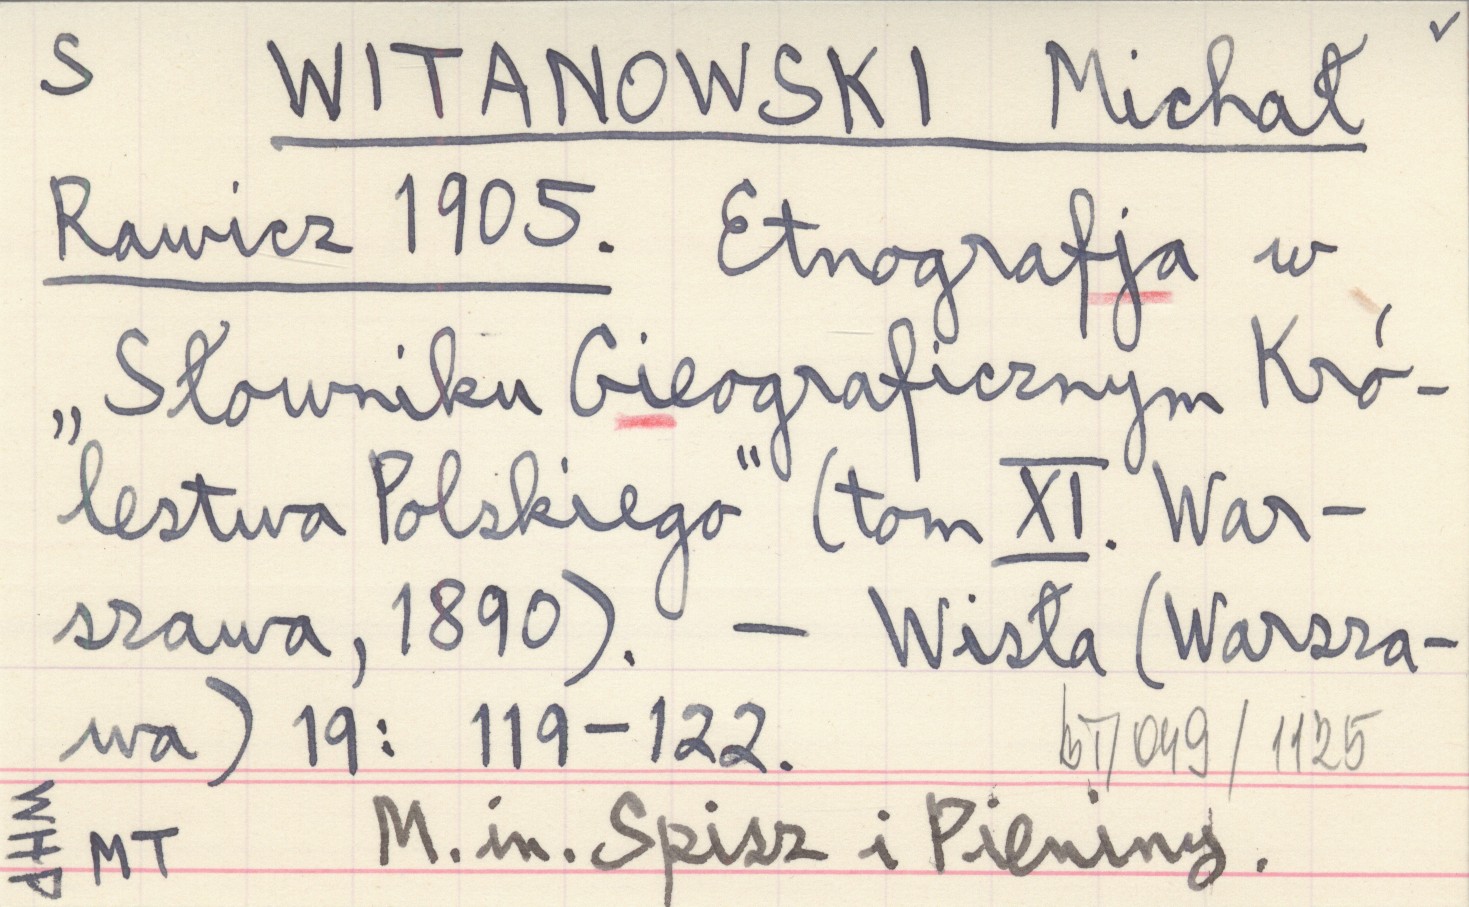 S WITANOWSKI Michał ✓
Rawicz 1905. Etnografja w
„Słowniku Gieograficznym Kró-
lestwa Polskiego" (tom XI. War-
szawa, 1890). — Wisła (Warsza-
wa) 19: 119-122.
bT/049/1125
PHM MT M. in. Spisz i Pieniny.